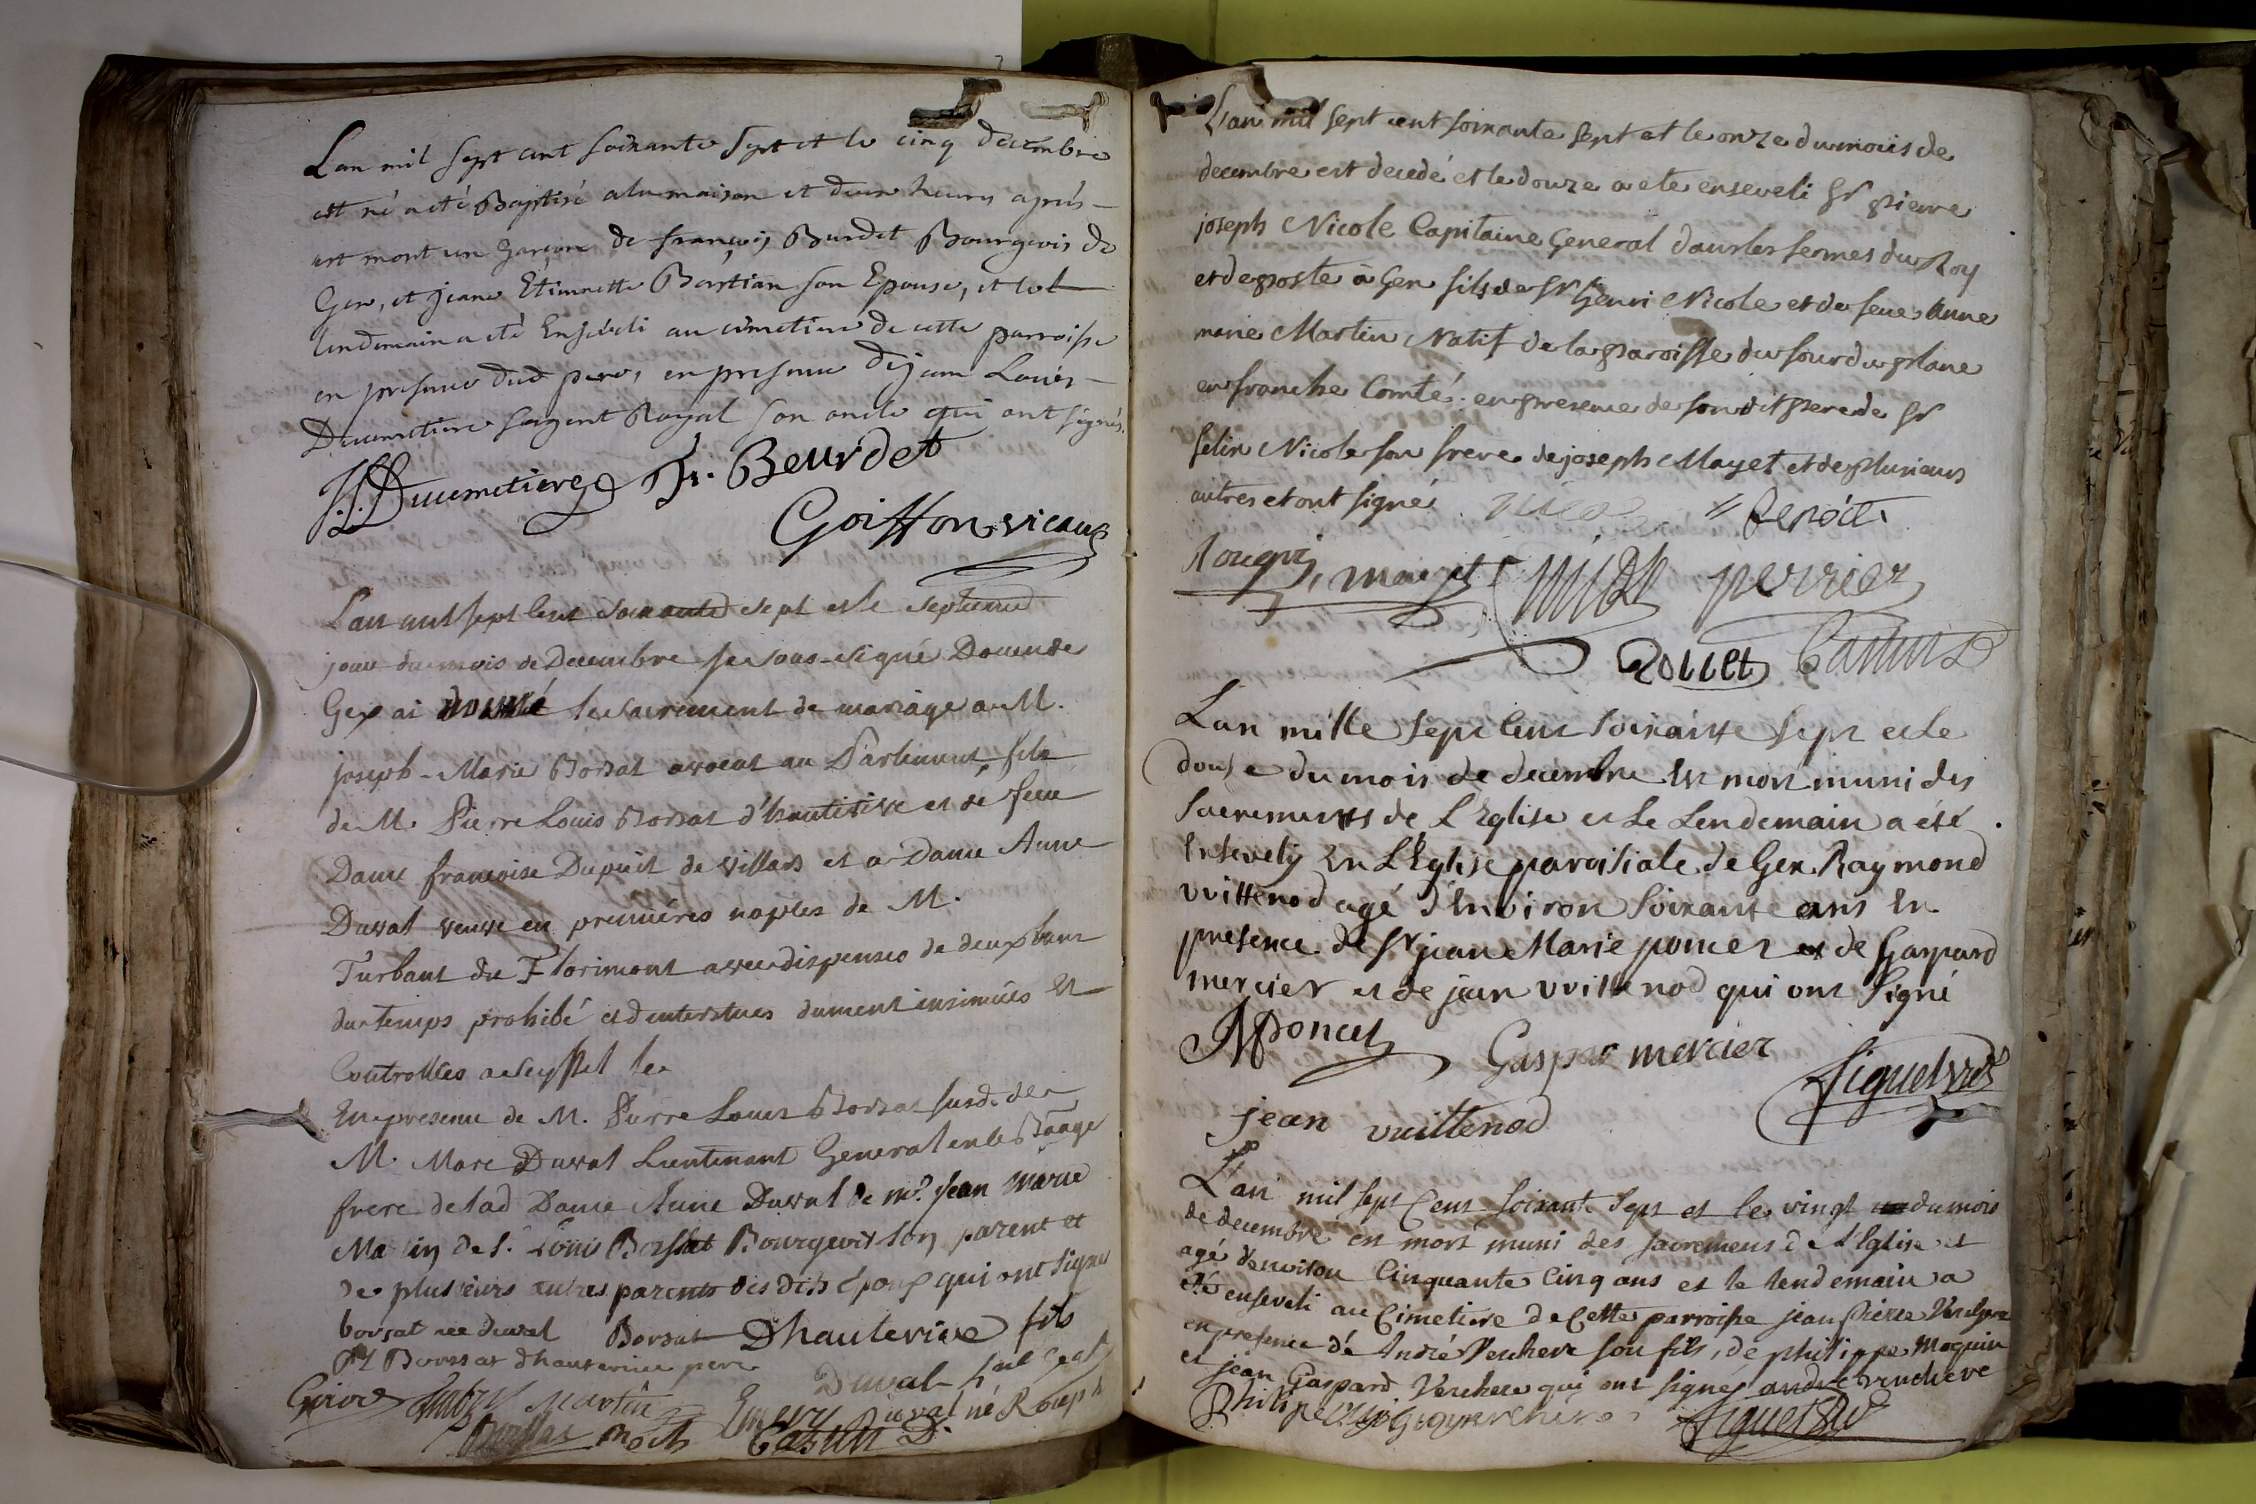 Lan mil sept cent soixante sept et le cinq decembre
est né a été Baptisé a la maison et deux heures aprés
est mort un garçon de françois Burdet Bourgeois de
Gex, et jeane Etiennette Bastian son Epouse, et le
lendemain a été Enséveli au cimetiere de cette parroisse
en presence dud pere, en presence de jean Louis
Ducimetiere sergent Royal son oncle qui ont signés.
J. L. Ducimetiere fr. Beurdet
Goiffon vicaire
Lan mil sept Cent Soixante Sept et le Septieme
jour du mois de Decembre Je Sous-Signé Doien de
Gex ai donné le Sacrement de mariage a M.
joseph-Marie Borsat avocat au Parlement fils
de M. Pierre Louis Borsat d'hauterive et de feue
Dame francoise Dupuit de Villars et a Dame Anne
Duval veuve en premiéres nopces de M.
Turbant du Florimont avec dispenses de deux bans
du temps prohibé et d'interstices dument insinuées Et
Controllées a Seyssel le
En presence de M. Pierre Louis Borsat susd. de
M. Marc Duval Lieutenant General en le Baage
frere de lad Dame Anne Duval de mr. jean marie
Martin de S. Louis Borssat Bourgeois son parent et
de plusieurs autres parents des dits Epoux qui ont signés
borsat née duval Borsat Dhauterive fils
PL Borssat dhauterive pere
Girod fabry Martin Emery Duval
Duval né Rouph
roch Castin D.
L'an mil sept cent soixante sept et le onze du mois de
decembre est decedé et le douze a ete enseveli Sr pierre
joseph Nicole Capitaine General dans les fermes du Roy
et de poste à Gex fils de Sr henri Nicole et de feue Anne
marie Martin Natif de la paroisse du fourdu plane
en franche Comté. en presence de son dit pere de Sr
felix Nicole son frere de joseph Mayet et de plusieurs
autres et ont signé
Benoit
mayet perrier
Rouet Castin D
Lan mille sept Cent Soixante Sept et Le
douse du mois de decembre Est mort muni des
Sacrements de L'Eglise et Le Lendemain a été
Ensevely En L'Eglise paroisiale de Gex Raymond
vuittenod agé d'Environ Soixante ans En
presence de Sr jean Marie poncet et de Gaspard
mercier et de jean vuittenod qui ont Signé
JM Poncet Gaspar mercier
Siguet vic
jean vuittenod
L'an mil sept Cent Soixante Sept et le vingt du mois
de decembre est mort muni des sacremens de l'Eglise et
agé denviron Cinquante Cinq ans et le lendemain a
été enseveli au Cimetiere de Cette parroisse jean Pierre Verchere
en presence de André Verchere son fils, de philippe Moquin
et jean Gaspard Verchere qui ont signés andre verchere
Philipe Siguet vic